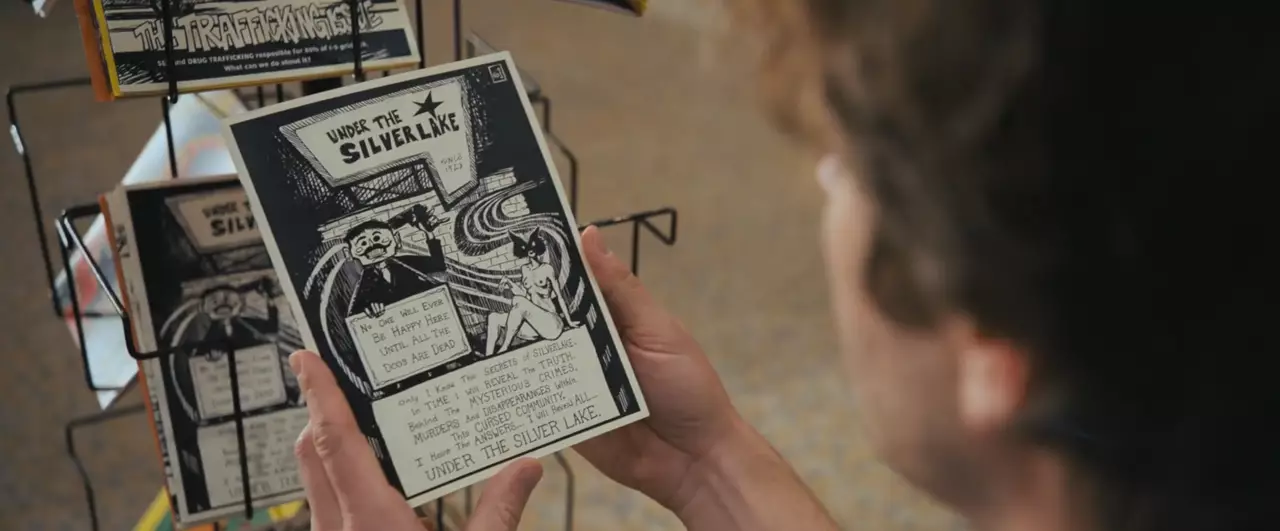 THE TRAFFICKING ISSUE
SEX and DRUG TRAFFICKING resposible for 80% of
What can we do about it?
UNDER THE
SILVER LAKE
SINCE
UNDER THE
SILV
No One Will Ever
Be Happy Here
Until All The
Dogs Are Dead
Only I Know The Secrets of SILVERLAKE.
In TIME I Will REVEAL The TRUTH.
Behind The MYSTERIOUS CRIMES,
MURDERS And DISAPPEARANCES Within
This CURSED COMMUNITY.
I Have The ANSWERS... I Will Reveal ALL...
UNDER THE SILVER LAKE.